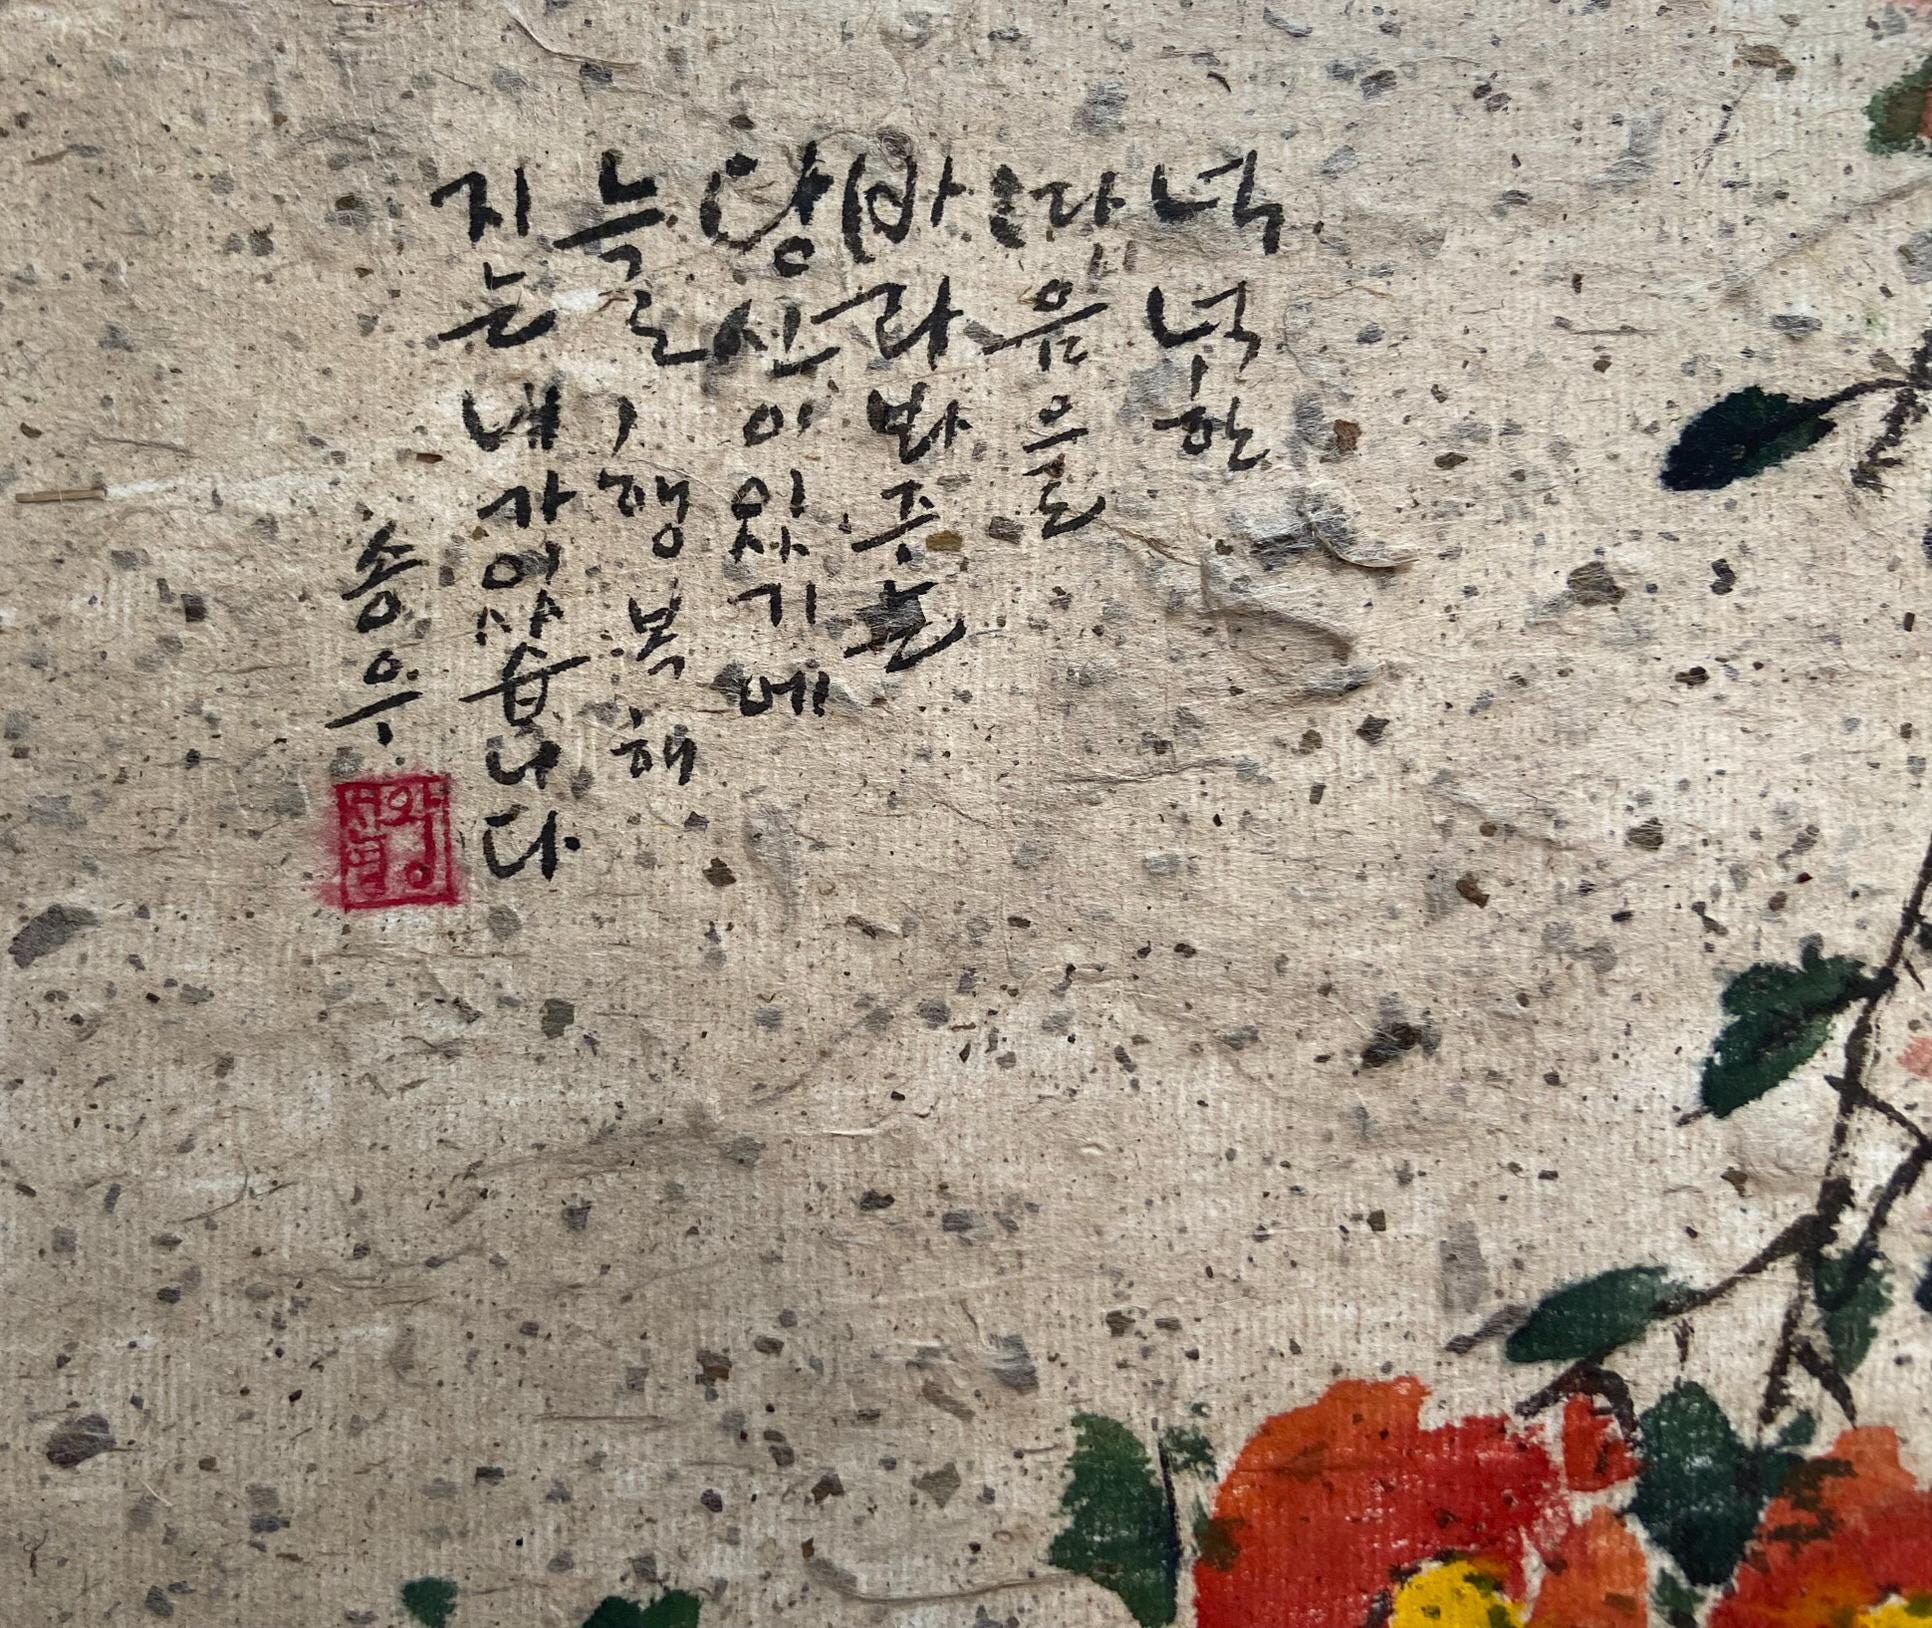 넉넉한
마음을
바라봐주는
당신이있기에
늘, 행복해
지는내가있습니다
송우